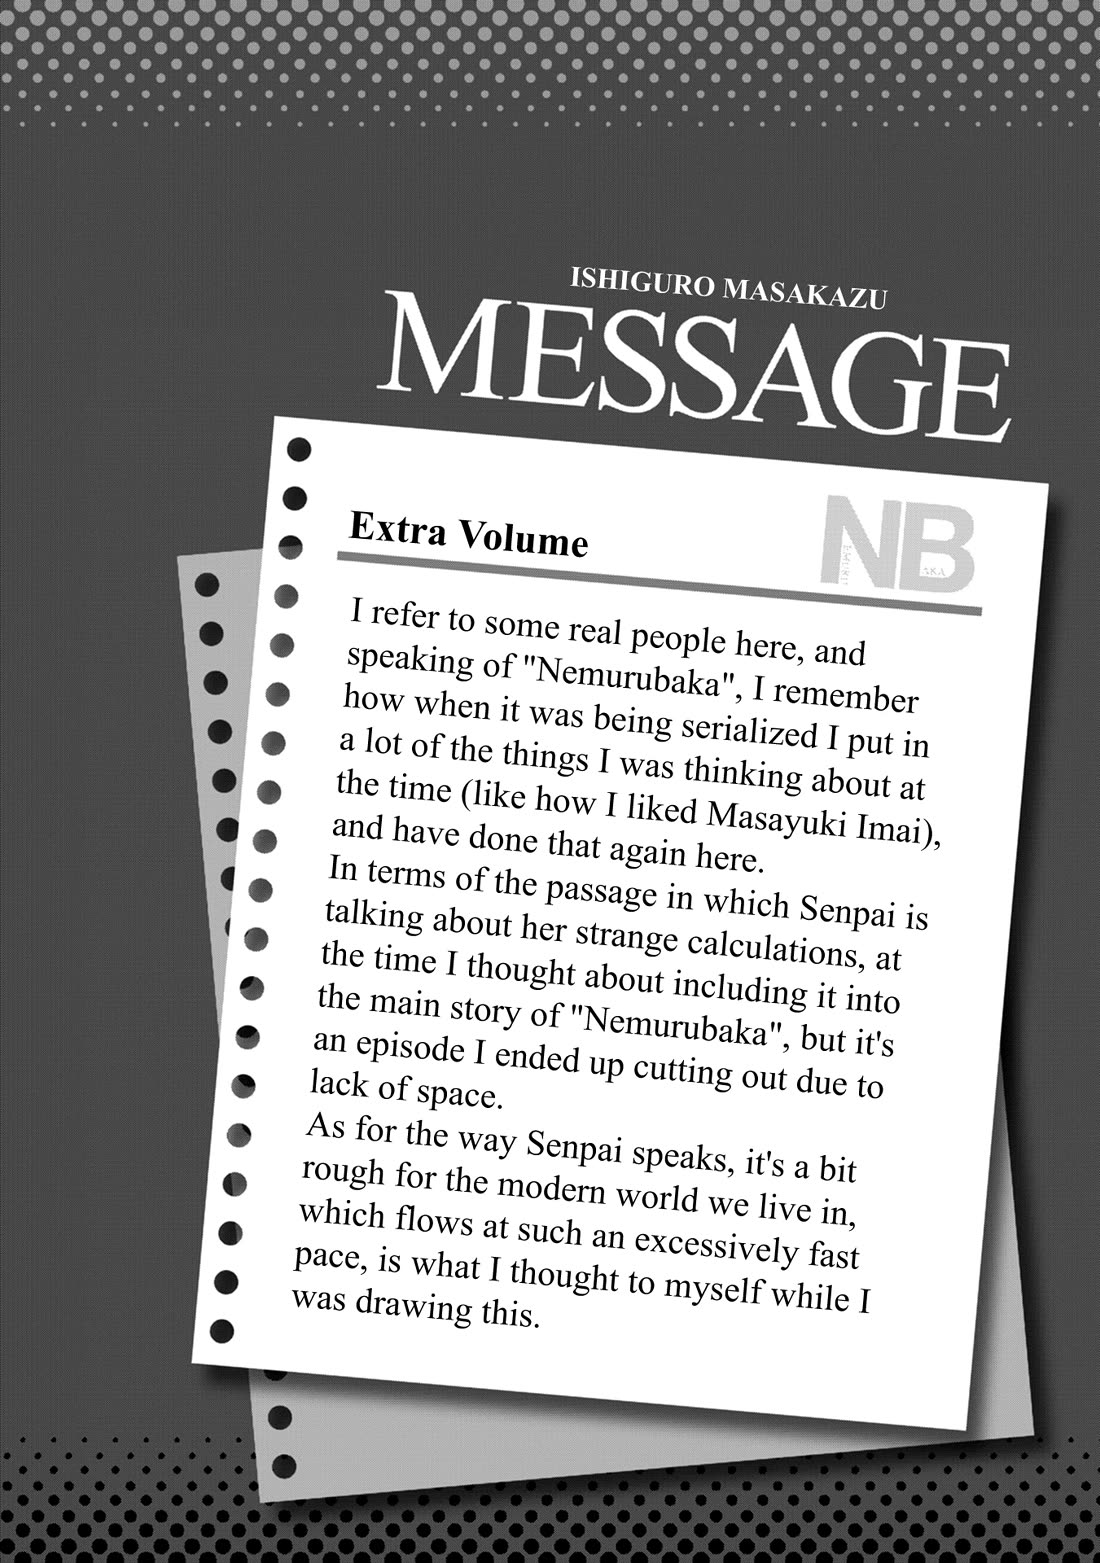 ISHIGURO MASAKAZU
MESSAGE
Extra Volume
NB
AKA
I refer to some real people here, and
speaking of "Nemurubaka", I remember
how when it was being serialized I put in
a lot of the things I was thinking about at
the time (like how I liked Masayuki Imai),
and have done that again here.
In terms of the passage in which Senpai is
talking about her strange calculations, at
the time I thought about including it into
the main story of "Nemurubaka", but it's
an episode I ended up cutting out due to
lack of space.
As for the way Senpai speaks, it's a bit
rough for the modern world we live in,
which flows at such an excessively fast
pace, is what I thought to myself while I
was drawing this.